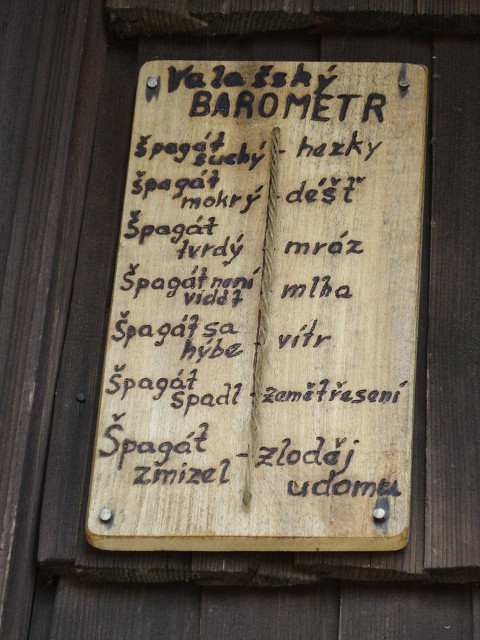 Valašský
BAROMETR
špagát
suchý - hezky
špagát
mokrý - déšť
špagát
tvrdý - mráz
Špagát není
vidět - mlha
Špagát sa
hýbe - vítr
Špagát
spadl - zemětřesení
Špagát
zmizel - zloděj
udomu